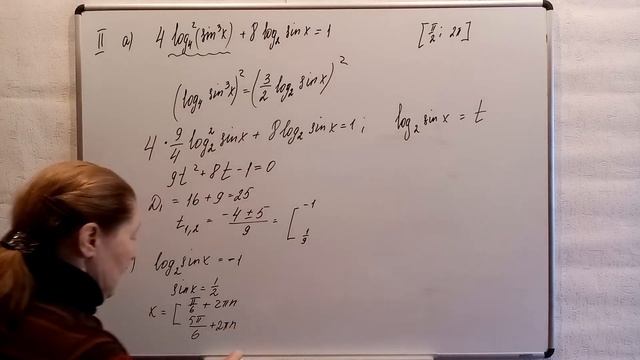 II a) 4 log₄²(sin³x) + 8 log₂ sin x = 1 [π/2; 2π]
(log₄ sin³x)² = (3/2 log₂ sin x)²
4 · 9/4 log₂² sin x + 8 log₂ sin x = 1; log₂ sin x = t
9t² + 8t - 1 = 0
D₁ = 16 + 9 = 25
t₁,₂ = (-4 ± 5)/9 = [ -1
1/9
) log₂ sin x = -1
sin x = 1/2
x = [ π/6 + 2πn
5π/6 + 2πn